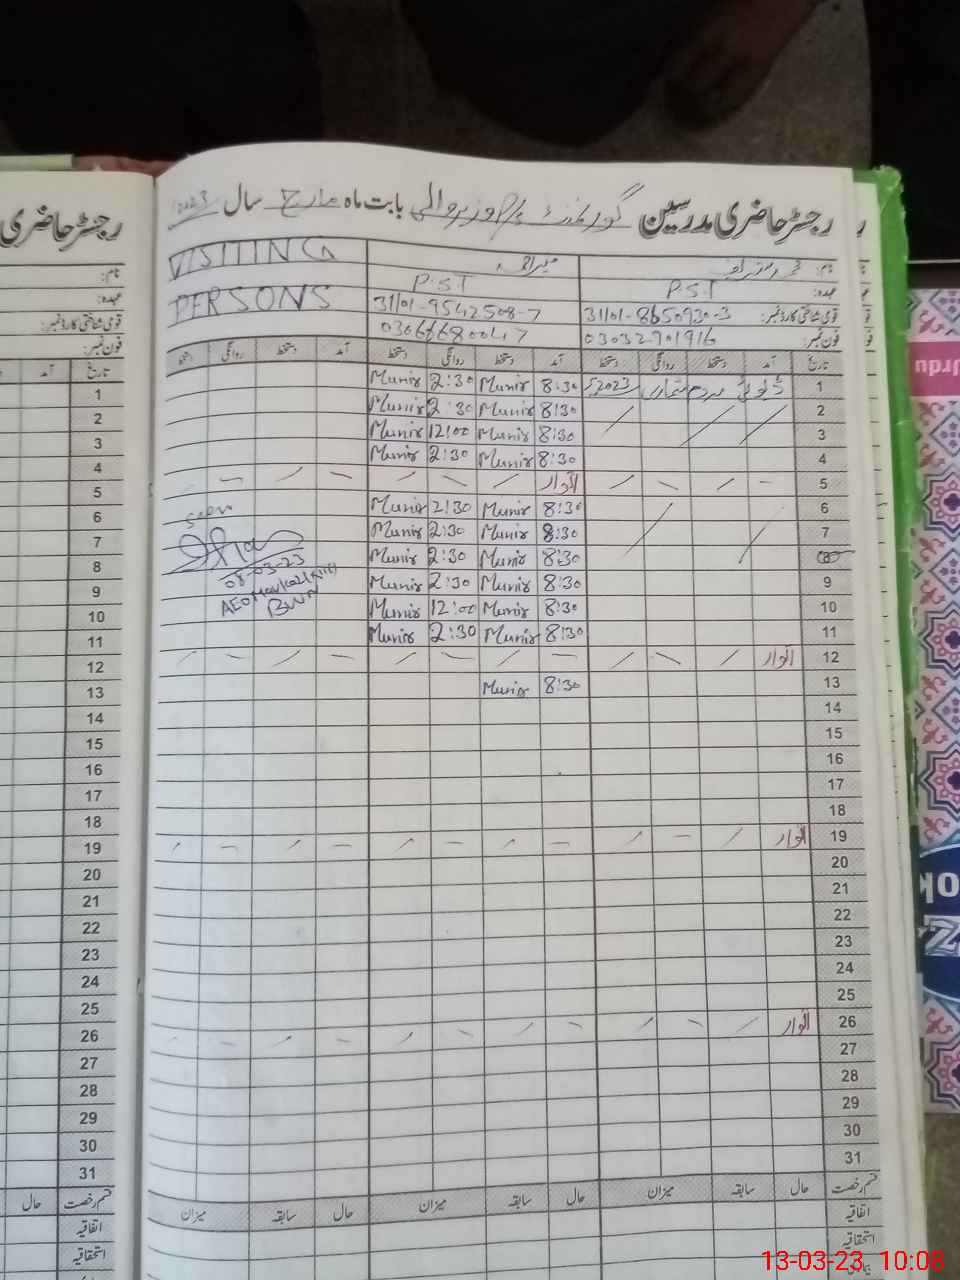 رجسٹر حاضری مدرسین گورنمنٹ بابت ماہ مارچ سال 2023
نام:
عہدہ: P.S.T P.S.T
قومی شناختی کارڈ نمبر: 31101-8650930-3 31101-9542508-7
فون نمبر: 03032901916 03066680047
VISITING
PERSONS
تاریخ آمد دستخط روانگی دستخط آمد دستخط روانگی دستخط آمد دستخط روانگی دستخط
1 ڈیوٹی مردم شماری 2023 8:30 Munir 2:30 Munir
2 8:30 Munir 2:30 Munir
3 8:30 Munir 12:00 Munir
4 8:30 Munir 2:30 Munir
5 اتوار
6 8:30 Munir 2:30 Munir
7 8:30 Munir 2:30 Munir
8 8:30 Munir 2:30 Munir
9 8:30 Munir 2:30 Munir
10 8:30 Munir 12:00 Munir
11 8:30 Munir 2:30 Munir
12 اتوار
13 8:30 Munir
14
15
16
17
18
19 اتوار
20
21
22
23
24
25
26 اتوار
27
28
29
30
31
seen
08-03-23
AEO
BWN
قسم رخصت حال سابقہ میزان حال سابقہ میزان حال سابقہ میزان
اتفاقیہ
استحقاقیہ
رجسٹر حاضری
نام:
عہدہ:
قومی شناختی کارڈ نمبر:
فون نمبر:
تاریخ آمد
1
2
3
4
5
6
7
8
9
10
11
12
13
14
15
16
17
18
19
20
21
22
23
24
25
26
27
28
29
30
31
قسم رخصت حال
اتفاقیہ
استحقاقیہ
Urdu
ok
13-03-23, 10:08